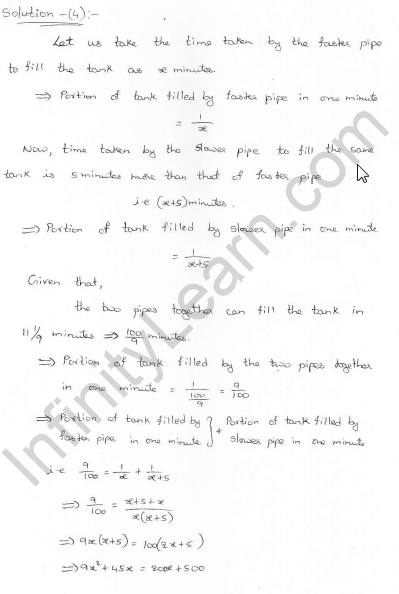 Solution -(4):-
Let us take the time taken by the faster pipe
to fill the tank as x minutes.
⇒ Portion of tank filled by faster pipe in one minute
= 1/x
Now, time taken by the slower pipe to fill the same
tank is 5 minutes more than that of faster pipe
i.e (x+5) minutes.
⇒ Portion of tank filled by slower pipe in one minute
= 1/(x+5)
Given that,
the two pipes together can fill the tank in
11 1/9 minutes ⇒ 100/9 minutes.
⇒ Portion of tank filled by the two pipes together
in one minute = 1/(100/9) = 9/100
⇒ Portion of tank filled by faster pipe in one minute } + Portion of tank filled by slower pipe in one minute
i.e 9/100 = 1/x + 1/(x+5)
⇒ 9/100 = (x+5+x)/(x(x+5))
⇒ 9x(x+5) = 100(2x+5)
⇒ 9x² + 45x = 200x + 500
InfinityLearn.com